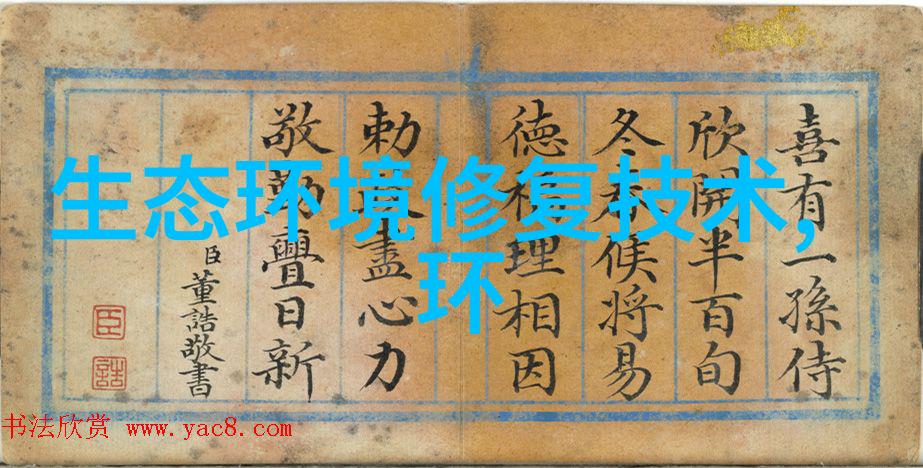 生态环境修复技术,
环
喜有一孫侍
欣開半百旬
冬春候將易
德福理相因
勅盡心力
敬勤疊日新
臣董誥敬書
臣
誥
书法欣赏 www.yac8.com